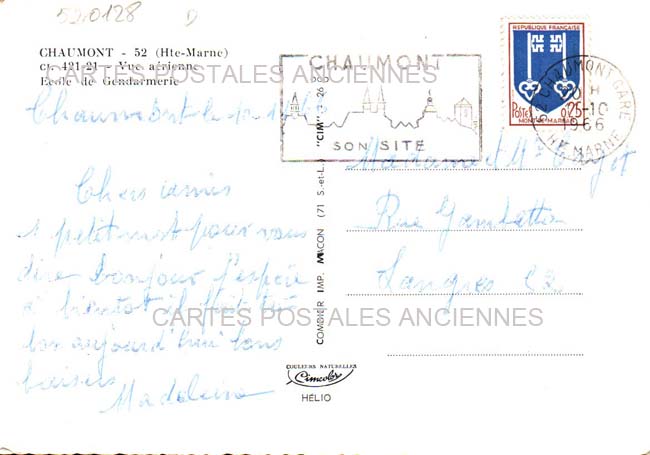 520128 D
CHAUMONT - 52 (Hte-Marne)
ct. 421-21 - Vue aérienne
Ecole de Gendarmerie
CARTES POSTALES ANCIENNES
Chaumont le
Chers amis
1 petit mot pour vous
dire bonjour j'espère
à bientôt il fait très
bon aujourd'hui bons
baisers
Madeleine
CARTES POSTALES ANCIENNES
COMBIER IMP. MACON (71 S.-et-L.) "CIM"
COULEURS NATURELLES
Cimcolor
HÉLIO
CHAUMONT
SON SITE
REPUBLIQUE FRANÇAISE
Postes 0,25
MONT-DE-MARSAN
52 CHAUMONT GARE
H
-10
1966
HTE MARNE
Madame et Mr
Rue Gambetta
Langres 52